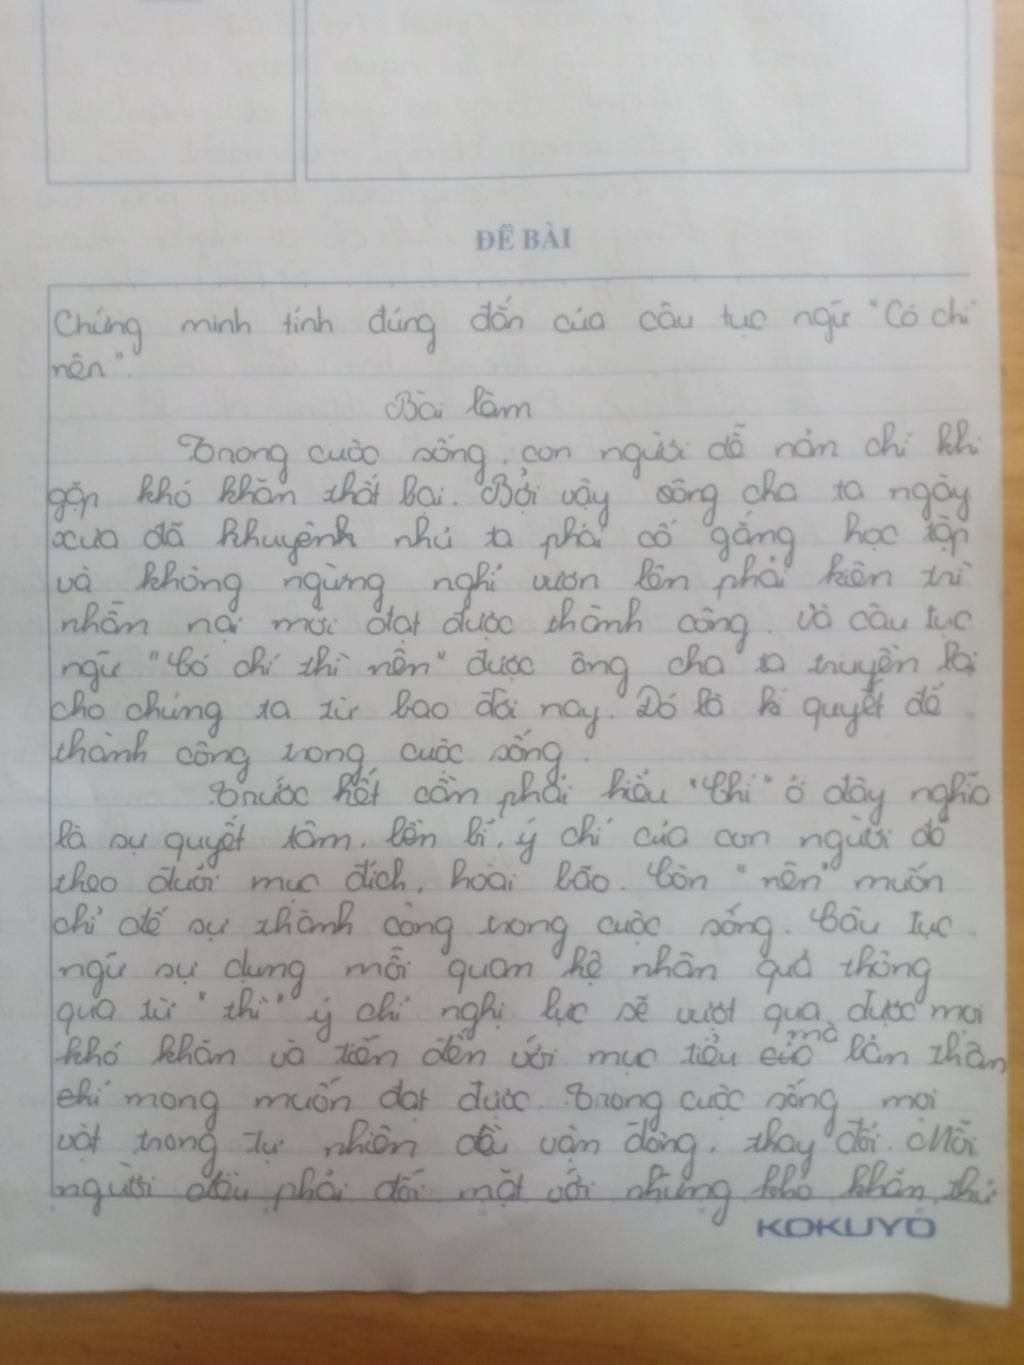 ĐỀ BÀI
Chứng minh tính đúng đắn của câu tục ngữ "Có chí
nên".
Bài làm
Trong cuộc sống, con người dễ nản chí khi
gặp khó khăn thất bại. Bởi vậy sông cha ta ngày
xưa đã khuyênh nhủ ta phải cố gắng học tập
và không ngừng nghỉ vươn lên phải kiên trì
nhẫn nại mới đạt được thành công. Và câu tục
ngữ "Có chí thì nên" được ông cha ta truyền lại
cho chúng ta từ bao đời nay. Đó là bí quyết để
thành công trong cuộc sống.
Trước hết cần phải hiểu "Chí" ở đây nghĩa
là sự quyết tâm, bền bỉ, ý chí của con người để
theo đuổi mục đích, hoài bão. Còn "nên" muốn
chỉ đế sự thành công trong cuộc sống. Câu tục
ngữ sự dụng mỗi quan hệ nhân quả thông
qua từ "thì" ý chí nghị lực sẽ vượt qua được mọi
khó khăn và tiến đến với mục tiêu mà bản thân
chỉ mong muốn đạt được. Trong cuộc sống mọi
vật trong tự nhiên đều vận động, thay đổi. Mỗi
người đều phải đối mặt với những khó khăn, thử
KOKUYO